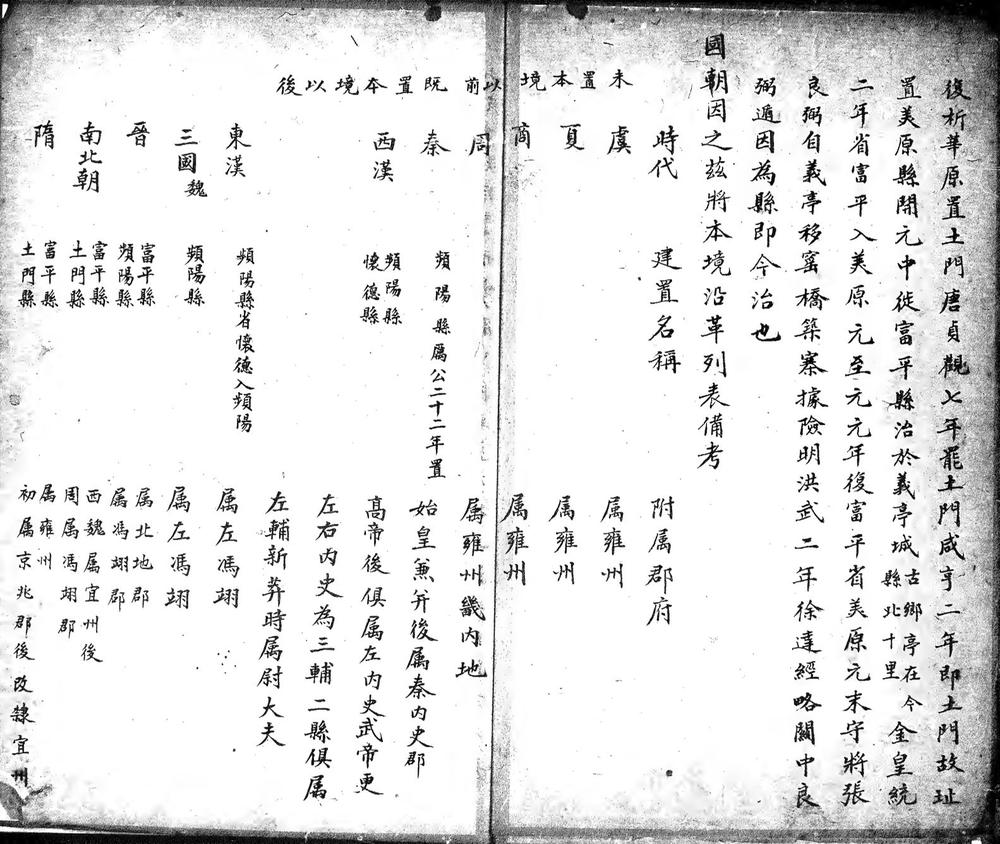 後析華原置土門唐貞觀七年罷土門咸亨二年即土門故址
置美原縣開元中徙富平縣治於義亭城古鄉亭在今縣北十里金皇統
二年省富平入美原元至元元年後富平省美原元末守將張
良弼自義亭移窰橋築寨據險明洪武二年徐達經略關中良
弼遁因為縣即今治也
國朝因之茲將本境沿革列表備考
時代 建置名稱 附属郡府
未置本境以前
虞 属雍州
夏 属雍州
商 属雍州
周 属雍州畿内地
既置本境以後
秦 頻陽縣厲公二十二年置 始皇兼并後属秦内史郡
西漢 頻陽縣 高帝後俱属左内史武帝更
懷德縣 左右内史為三輔二縣俱属
左輔新莽時属尉大夫
東漢 頻陽縣省懷德入頻陽 属左馮翊
三國魏 頻陽縣 属左馮翊
晉 富平縣 属北地郡
頻陽縣 属馮翊郡
南北朝 富平縣 西魏属宜州後
土門縣 周属馮翊郡
隋 富平縣 属雍州
土門縣 初属京兆郡後改隸宜州